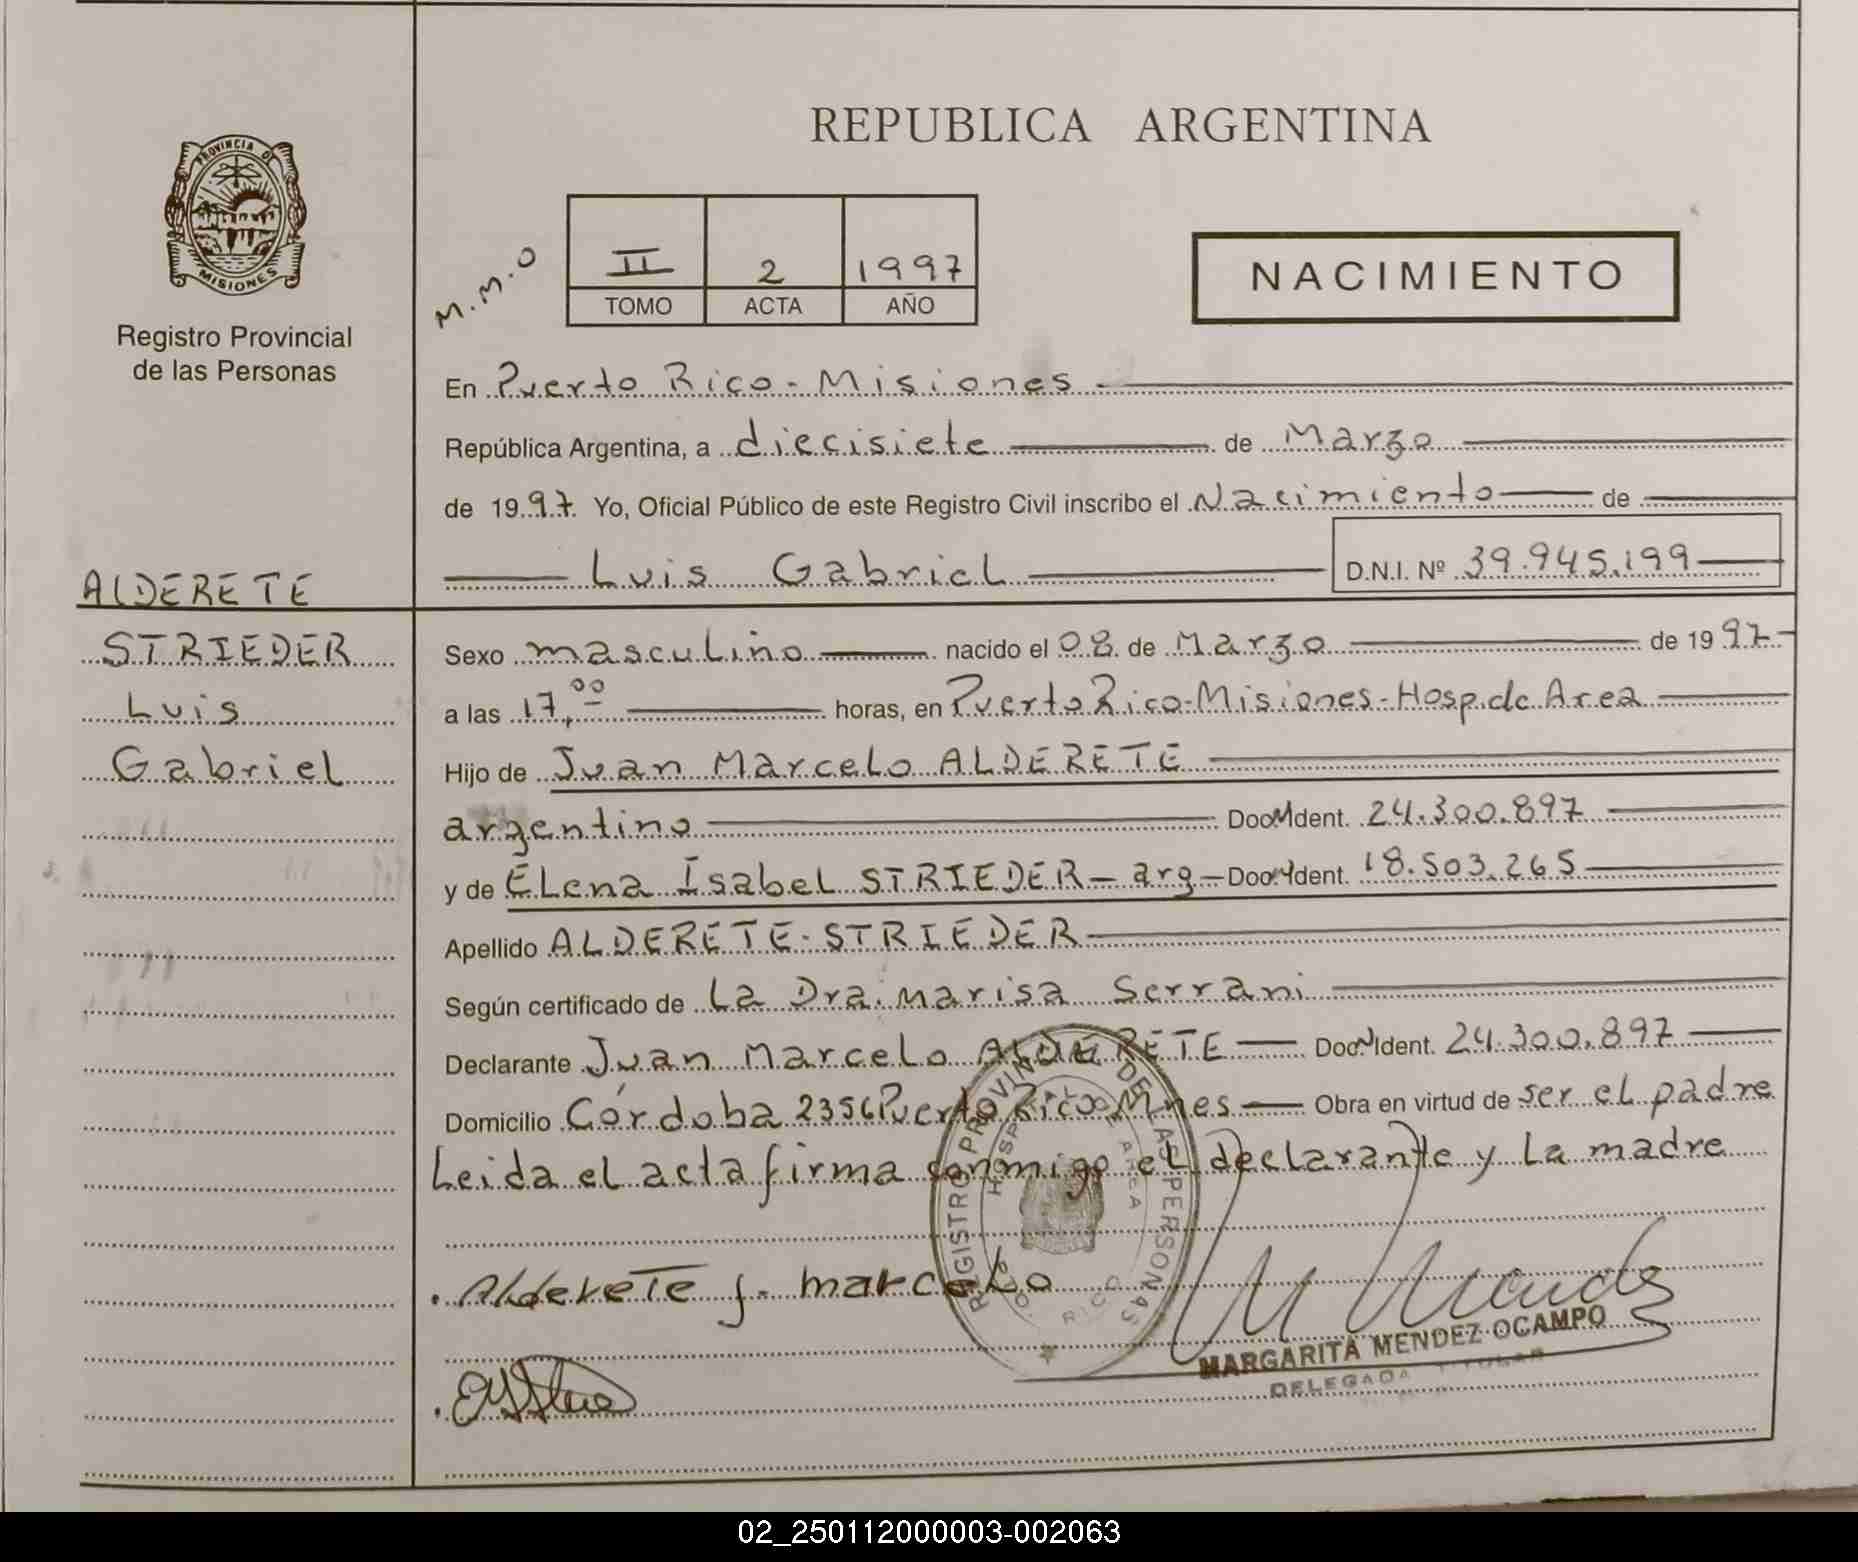 REPUBLICA ARGENTINA
PROVINCIA DE
MISIONES
Registro Provincial
de las Personas
M.M.O
II 2 1997
TOMO ACTA AÑO
NACIMIENTO
En Puerto Rico - Misiones
República Argentina, a diecisiete de Marzo
de 1997 Yo, Oficial Público de este Registro Civil inscribo el Nacimiento de
Luis Gabriel D.N.I. Nº 39.945.199
ALDERETE
STRIEDER
Luis
Gabriel
Sexo masculino nacido el 08 de Marzo de 1997
a las 17,00 horas, en Puerto Rico-Misiones-Hosp.de Area
Hijo de Juan Marcelo ALDERETE
argentino Doc. Ident. 24.300.897
y de Elena Isabel STRIEDER - arg - Doc. Ident. 18.503.265
Apellido ALDERETE-STRIEDER
Según certificado de La Dra. Marisa Serrani
Declarante Juan Marcelo ALDERETE Doc. Ident. 24.300.897
Domicilio Córdoba 2356 Puerto Rico Mnes Obra en virtud de ser el padre
Leida el acta firma conmigo el declarante y la madre
REGISTRO PROVINCIAL DE LAS PERSONAS
HOSPITAL DE AREA
PTO. RICO
Alderete J. Marcelo
M Mendez
MARGARITA MENDEZ OCAMPO
DELEGADA TITULAR
02_250112000003-002063